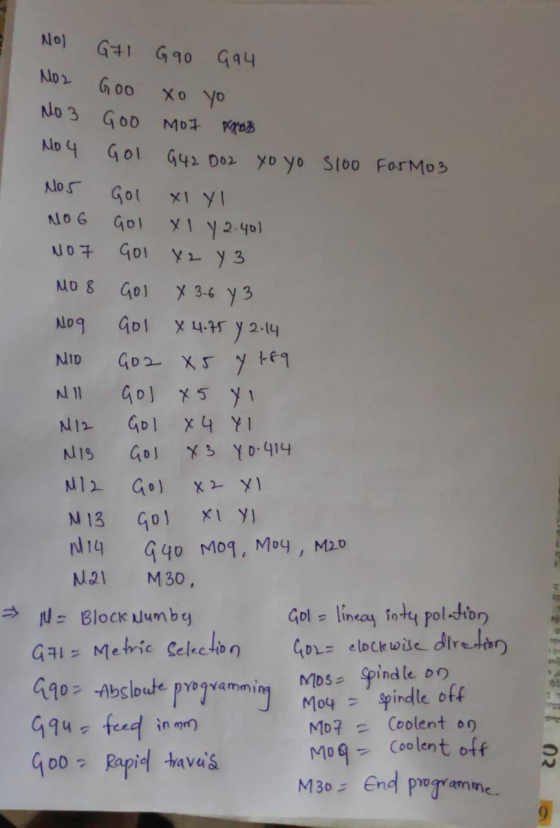 N01 G71 G90 G94
N02 G00 X0 Y0
N03 G00 M07
N04 G01 G42 D02 X0 Y0 S100 F05 M03
N05 G01 X1 Y1
N06 G01 X1 Y2.401
N07 G01 X2 Y3
N08 G01 X3.6 Y3
N09 G01 X4.75 Y2.14
N10 G02 X5 Y1.89
N11 G01 X5 Y1
N12 G01 X4 Y1
N13 G01 X3 Y0.414
N12 G01 X2 Y1
N13 G01 X1 Y1
N14 G40 M09, M04, M20
N21 M30,
⇒ N = Block Number
G71 = Metric Selection
G90 = Absloute programming
G94 = feed in mm
G00 = Rapid
G01 = linear
G02 = clockwise dirention
M03 = spindle on
M04 = spindle off
M07 = Coolent on
M09 = Coolent off
M30 = End programme
03
9